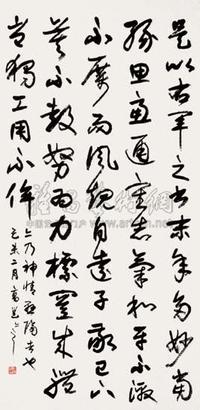 是以右軍之書末年多妙當
緣思慮通審志氣和平不激
不厲而風規自遠子敬已下
莫不鼓努為力標置成體
豈獨工用不侔
亦乃神情懸隔者也
二月